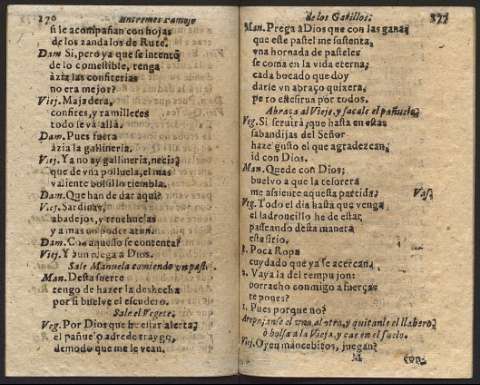 270 Entremes famoso
si le acompañan con hojas
de los zandalos de Rute.
Dam Si, pero ya que se intentò
de lo comestible, venga
àzia las confiterias
no era mejor?
Viej. Majadera,
confites, y ramilletes
todo se và allà.
Dam. Pues fuera
àzia la gallineria.
Viej. Ya no ay gallineria, necia;
que de vna polluela, el mas
valiente bolsillo tiembla.
Dam. Que han de dar aqui?
Viej. Sardinas,
abadejos, y truchuelas
y a mas no poder atun.
Dam. Con aquesso se contenta?
Viej. Y aun niega a Dios.
Sale Manuela comiendo vn past
Man. Desta suerte
tengo de hazer la deshecha
por si buelve el escudero.
Sale el Vegete.
Veg. Por Dios que he estar alerta;
el pañuelo adrede traygo,
de modo que me le vean.
de los Gatillos. 271
Man. Prega à Dios que con las ganas
que este pastel me sustenta,
vna hornada de pasteles
se coma en la vida eterna;
cada bocado que doy
darle vn abraço quixera,
pero este sirua por todos.
Abraça al Viejo, y sacale el pañuelo.
Veg. Si seruirà, que hasta en estas
sabandijas del Señor
haze gusto el que agradezcan;
id con Dios.
Man. Quede con Dios;
buelvo a que la tesorera
me assiente aquesta partida. Vase
Veg. Todo el dia hasta que venga
el ladroncillo he de estar
passeando desta manera
esta sitio.
1. Poca Ropa
cuydado que ya se acercan.
2. Vaya la del rempujon:
borracho conmigo a fuerças
te pones?
1. Pues porque no?
Arrojanse el vno al otro, y quitanle el llavero,
ò bolsa a la Vieja, y cae en el suelo.
Viej. Oyen mancebitos, juegan?
M con-